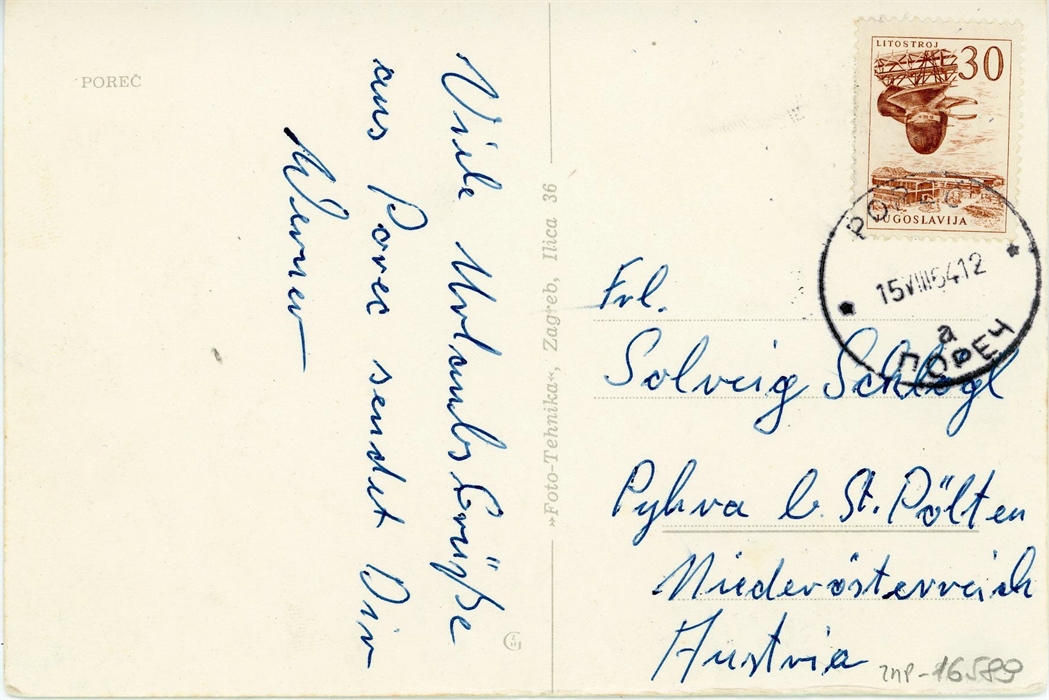 POREČ
Viele Urlaubsgrüße
aus Porec sendet Dir
Werner
»Foto-Tehnika«, Zagreb, Ilica 36
LITOSTROJ
30
JUGOSLAVIJA
POREČ
15VIII6412
a
ПОРЕЧ
Frl.
Solveig Schlögl
Pyhra b. St. Pölten
Niederösterreich
Austria
ZMP-16589